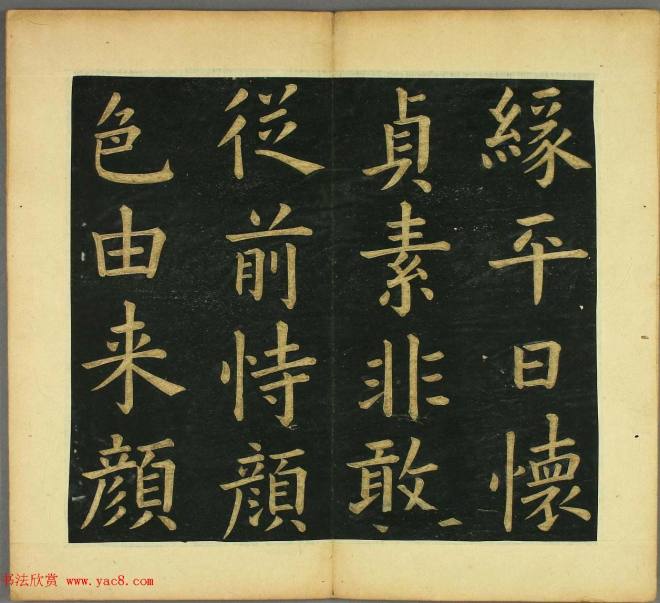 緣平日懷
貞素非敢
從前恃顔
色由来顔
书法欣赏 www.yac8.com